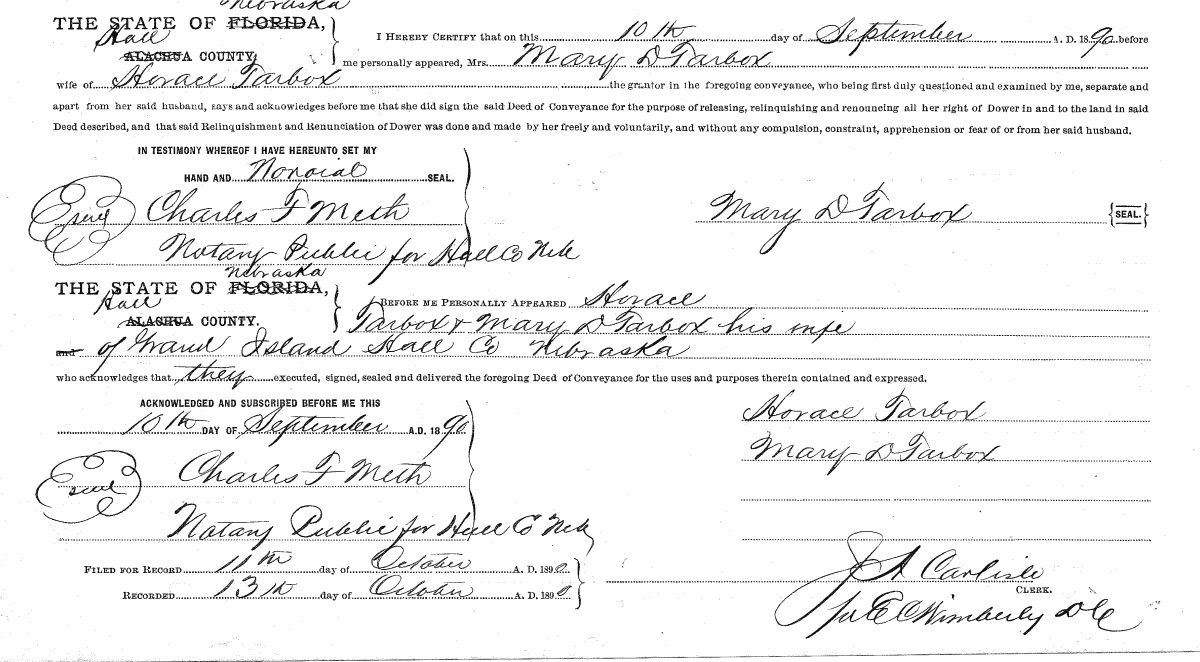 Nebraska
THE STATE OF FLORIDA,
Hall
ALACHUA COUNTY,
I HEREBY CERTIFY that on this 10th day of September A. D. 1890 before
me personally appeared, Mrs. Mary D Tarbox
wife of Horace Tarbox the grantor in the foregoing conveyance, who being first duly questioned and examined by me, separate and
apart from her said husband, says and acknowledges before me that she did sign the said Deed of Conveyance for the purpose of releasing, relinquishing and renouncing all her right of Dower in and to the land in said
Deed described, and that said Relinquishment and Renunciation of Dower was done and made by her freely and voluntarily, and without any compulsion, constraint, apprehension or fear of or from her said husband.
IN TESTIMONY WHEREOF I HAVE HEREUNTO SET MY
HAND AND Notorial SEAL.
Charles F Meth
Mary D Tarbox {SEAL.}
Notary Public for Hall Co Neb
Nebraska
THE STATE OF FLORIDA,
Hall
ALACHUA COUNTY.
BEFORE ME PERSONALLY APPEARED Horace
Tarbox & Mary D Tarbox his wife
and of Grand Island Hall Co Nebraska
who acknowledges that they executed, signed, sealed and delivered the foregoing Deed of Conveyance for the uses and purposes therein contained and expressed.
ACKNOWLEDGED AND SUBSCRIBED BEFORE ME THIS
10th DAY OF September A.D. 1890
Horace Tarbox
Mary D Tarbox
Seal
Charles F Meth
Notary Public for Hall Co Neb
FILED FOR RECORD 11th day of October A. D. 1890
RECORDED 13th day of October A. D. 1890
J A Carlisle
CLERK.
per E C Wimberly D C